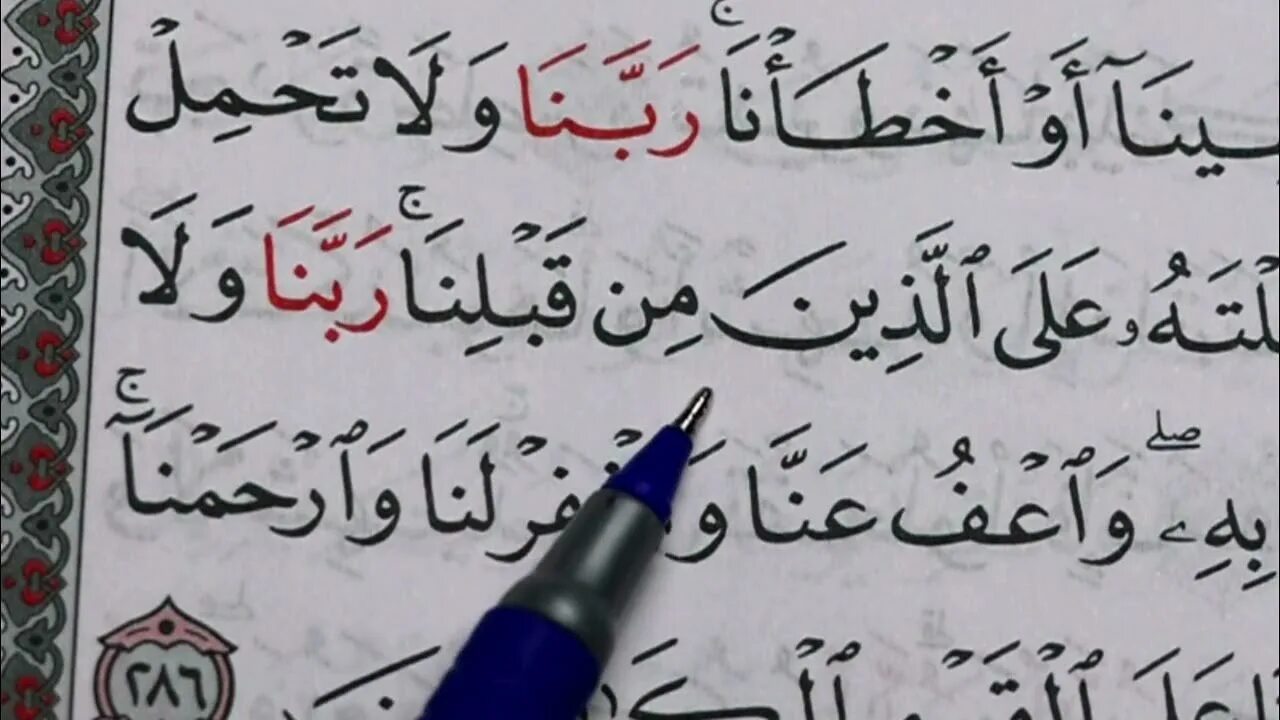 ـينَآ أَوْ أَخْطَأْنَاۚ رَبَّنَا وَلَا تَحْمِلْ
ـلْتَهُۥ عَلَى ٱلَّذِينَ مِن قَبْلِنَاۚ رَبَّنَا وَلَا
بِهِۦۖ وَٱعْفُ عَنَّا لَنَا وَٱرْحَمْنَآۚ
عَلَى ٱلْقَوْمِ ٢٨٦